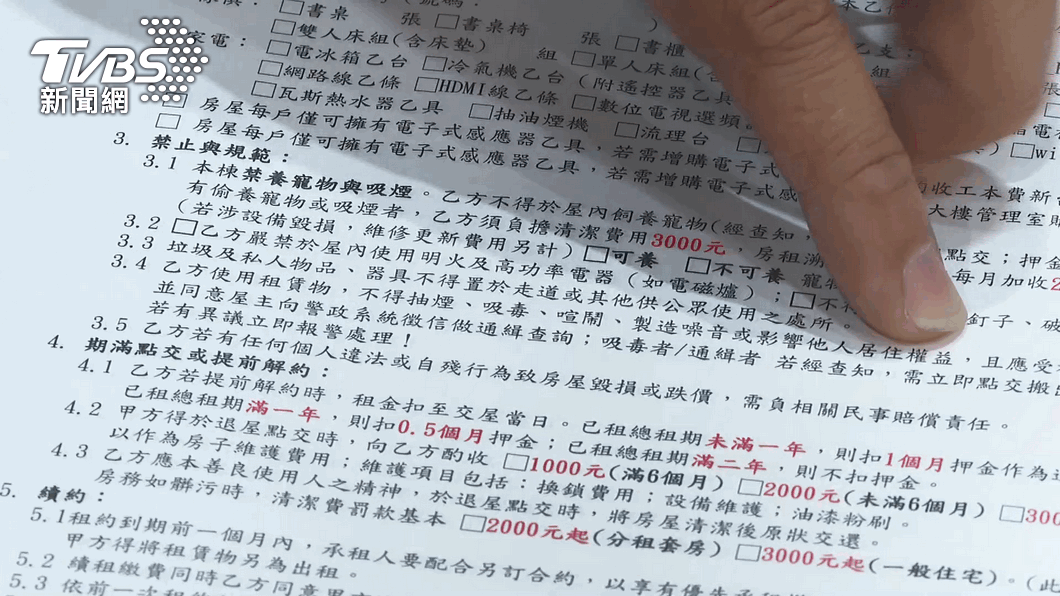 TVBS
新聞網
□書桌 張 □書桌椅 張 □書櫃
□雙人床組(含床墊) 組 □單人床組(含
家電： □電冰箱乙台 □冷氣機乙台(附遙控器乙具
□網路線乙條 □HDMI線乙條 □數位電視選頻。
□瓦斯熱水器乙具 □抽油煙機 □流理台
□ 房屋每戶僅可擁有電子式感應器乙具，若需增購電子式
□ 房屋每戶僅可擁有電子式感應器乙具，若需增購電子式感 收工本費新
3. 禁止與規範：
3.1 本棟禁養寵物與吸煙。乙方不得於屋內飼養寵物(經查知， 大樓管理室
有偷養寵物或吸煙者，乙方須負擔清潔費用3000元，房租溯 點交；押金
(若涉設備毀損，維修更新費用另計) □可養 □不可養 寵 每月加收2
3.2 □乙方嚴禁於屋內使用明火及高功率電器(如電磁爐)；□不 釘子、
3.3 垃圾及私人物品、器具不得置於走道或其他供公眾使用之處所。
3.4 乙方使用租賃物，不得抽煙、吸毒、喧鬧、製造噪音或影響他人居住權益，且應受
並同意屋主向警政系統徵信做通緝查詢；吸毒者/通緝者 若經查知，需立即點交搬
若有異議立即報警處理！
3.5 乙方若有任何個人違法或自殘行為致房屋毀損或跌價，需負相關民事賠償責任。
4. 期滿點交或提前解約：
4.1 乙方若提前解約時，租金扣至交屋當日。已租總租期未滿一年，則扣1個月押金作為
已租總租期滿一年，則扣0.5個月押金；已租總租期滿二年，則不扣押金。
4.2 甲方得於退屋點交時，向乙方酌收 □1000元(滿6個月) □2000元(未滿6個月) □300
以作為房子維護費用；維護項目包括：換鎖費用；設備維護；油漆粉刷。
4.3 乙方應本善良使用人之精神，於退屋點交時，將房屋清潔後原狀交還。
房務如髒污時，清潔費罰款基本 □2000元起(分租套房) □3000元起(一般住宅)。(此
5. 續約：
5.1租約到期前一個月內，承租人要配合另訂合約，以享有優先承租
甲方得將租賃物另為出租。
5.2 續租繳費同時乙方同意
5.3 依前一次租約